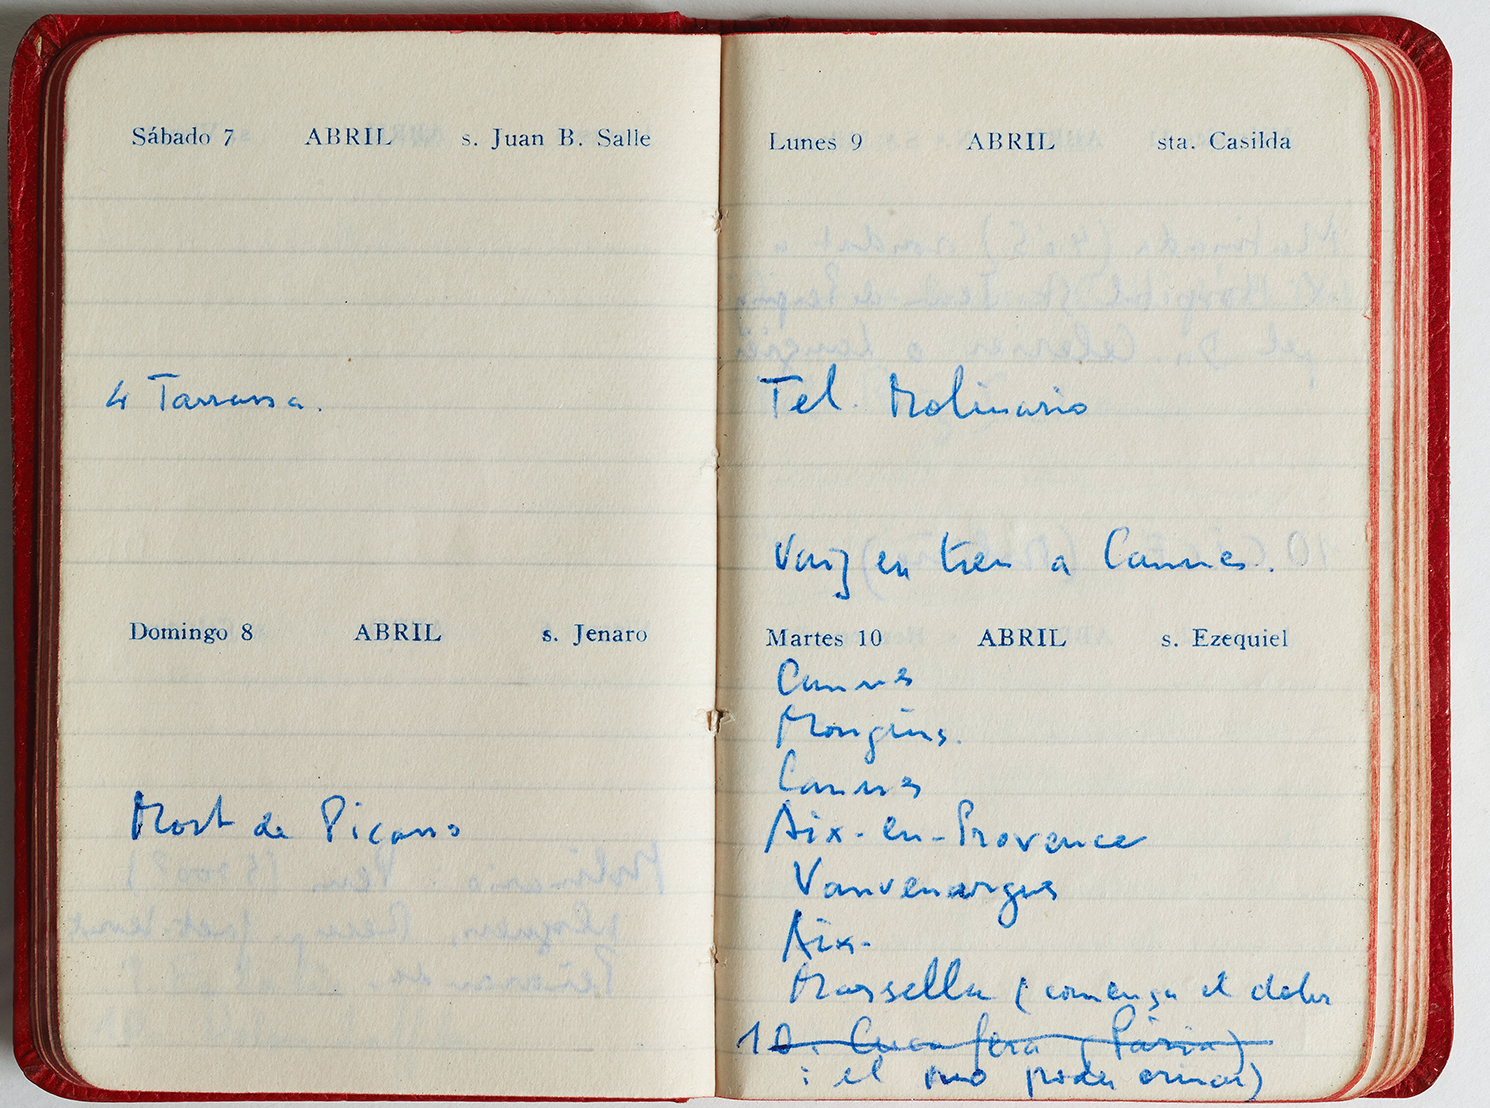 Sábado 7 ABRIL s. Juan B. Salle
4 Tarrassa.
Domingo 8 ABRIL s. Jenaro
Mort de Picasso
Lunes 9 ABRIL sta. Casilda
Tel. Molinario
Vaig en tren a Cannes.
Martes 10 ABRIL s. Ezequiel
Cannes
Mougins.
Cannes
Aix-en-Provence
Vauvenargues
Aix-
Marsella (comença el dolor
10. Cuca fera (Pària)
i el no poder orinar)